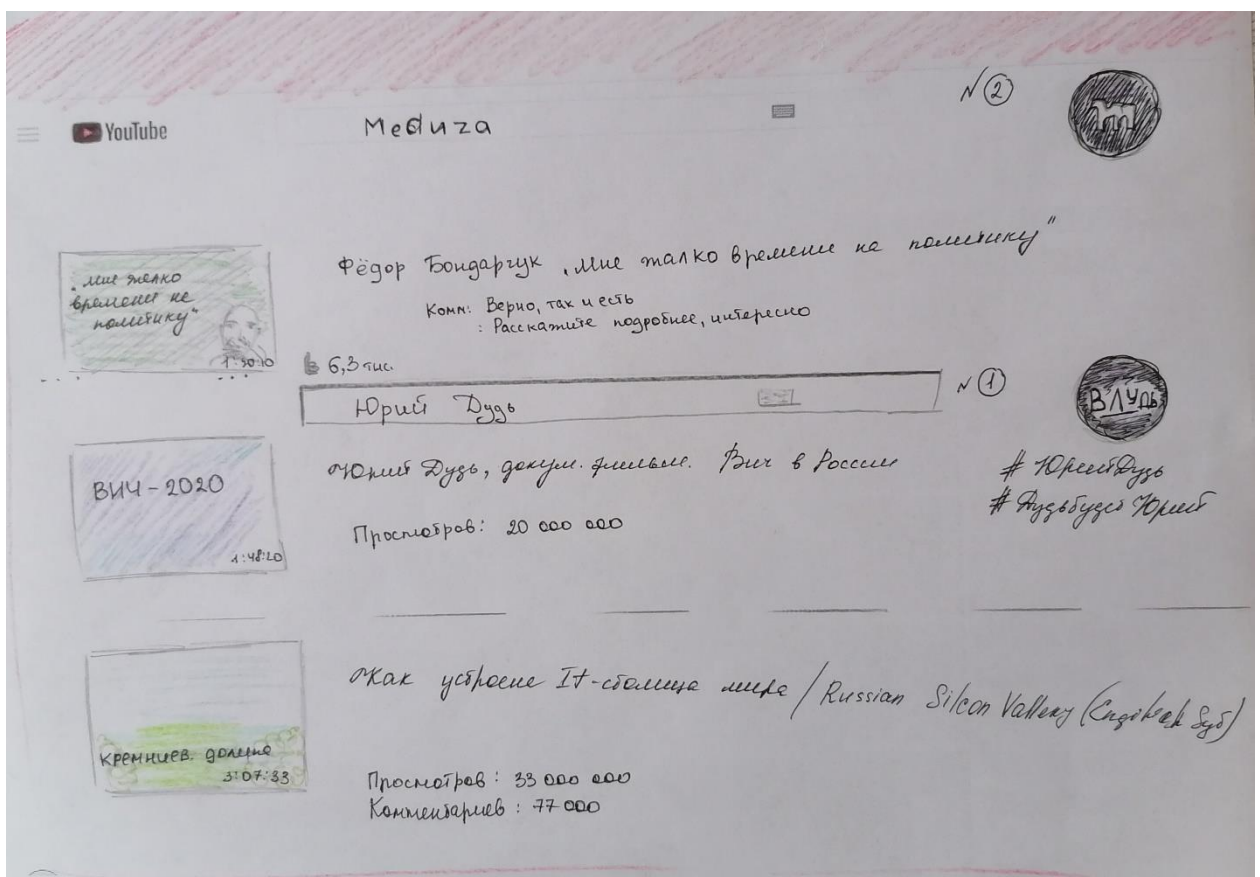 YouTube
Meduza
N 2
m
„Мне жалко
времени на
политику“
1:30:10
Фёдор Бондарчук „Мне жалко времени на политику“
Комм: Верно, так и есть
: Расскажите подробнее, интересно
6,3 тыс.
Юрий Дудь
N 1
вДудь
ВИЧ - 2020
1:48:20
Юрий Дудь, докум. фильм. Вич в России
Просмотров: 20 000 000
# ЮрийДудь
# ДудьбудетЮрий
Кремниев. долина
3:07:33
Как устроена It-столица мира / Russian Silcon Vallery (English Sуб)
Просмотров: 33 000 000
Комментариев: 77 000